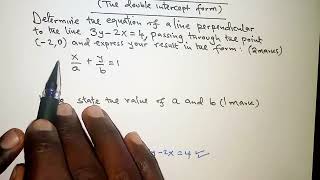 (The double intercept form)
Determine the equation of a line perpendicular
to the line 3y-2x=4, passing through the point
(-2,0) and express your result in the form: (2marks)
x/a + y/b = 1
state the value of a and b (1mark)
y-2x=4 ✓